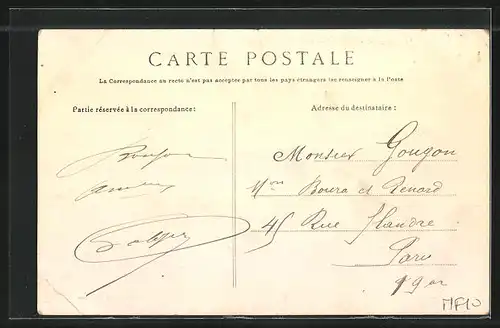 CARTE POSTALE
La Correspondance au recto n'est pas acceptée par tous les pays étrangers (se renseigner à la Poste
Partie réservée à la correspondance:
Adresse du destinataire:
Bonjour
Monsieur Gougon
Mon Boura et Renard
45 Rue Flandre
Paris
19
MF10